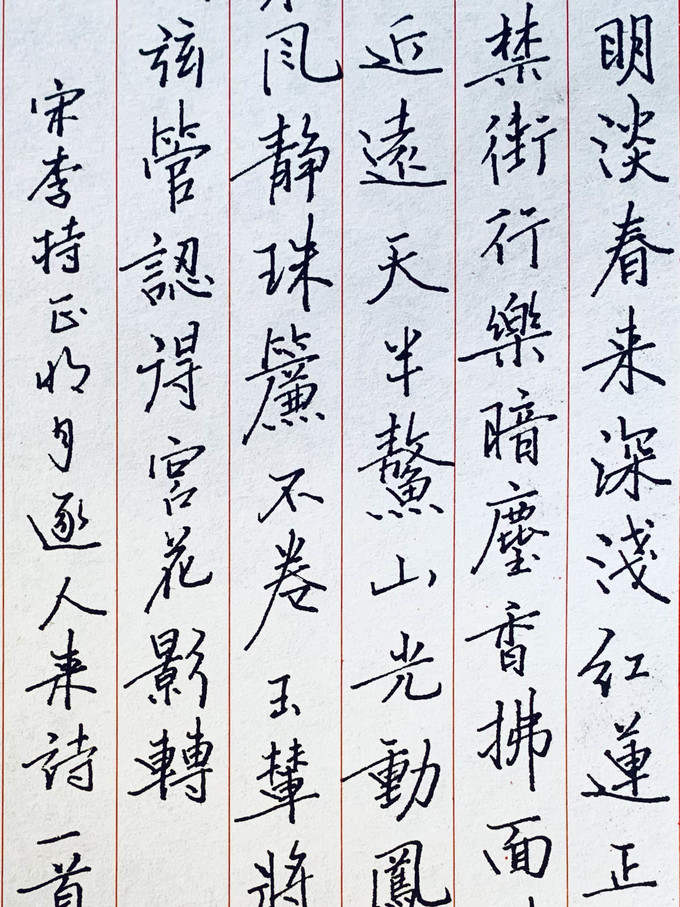 明淡春来深淺红蓮正
禁街行樂暗塵香拂面
近遠天半鰲山光動鳳
风靜珠簾不卷玉輦將
弦管認得宮花影轉
宋李持正明月逐人来詩一首